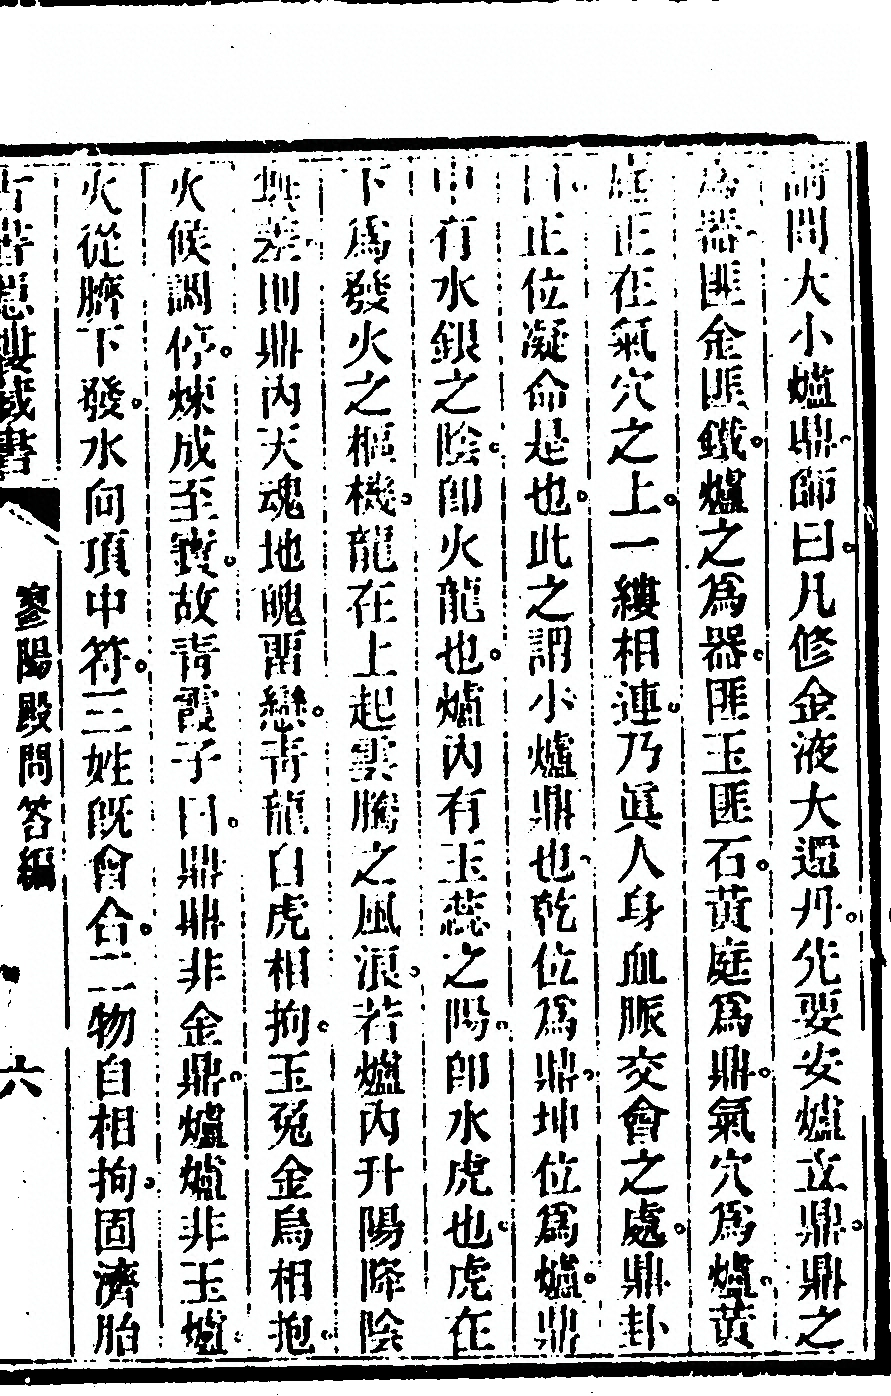 請問大小爐鼎師曰。凡修金液大還丹。先要安爐立鼎。鼎之
為器。匪金匪鐵。爐之為器。匪玉匪石。黃庭為鼎。氣穴為爐。黃
庭正在氣穴之上。一縷相連。乃眞人身血脈交會之處。鼎卦
曰。正位凝命是也。此之謂小爐鼎也。乾位為鼎。坤位為爐。鼎
中有水銀之陰。卽火龍也。爐內有玉蕊之陽。卽水虎也。虎在
下為發火之樞機。龍在上起雲騰之風浪。若爐內升陽降陰
無差。則鼎內天魂地魄留戀。靑龍白虎相拘。玉兔金烏相抱。
火候調停。煉成至寶。故靑霞子曰。鼎鼎非金鼎。爐爐非玉爐。
火從臍下發。水向頂中符。三姓旣會合。二物自相拘。固濟胎
古書隱樓藏書
寥陽殿問答編
六